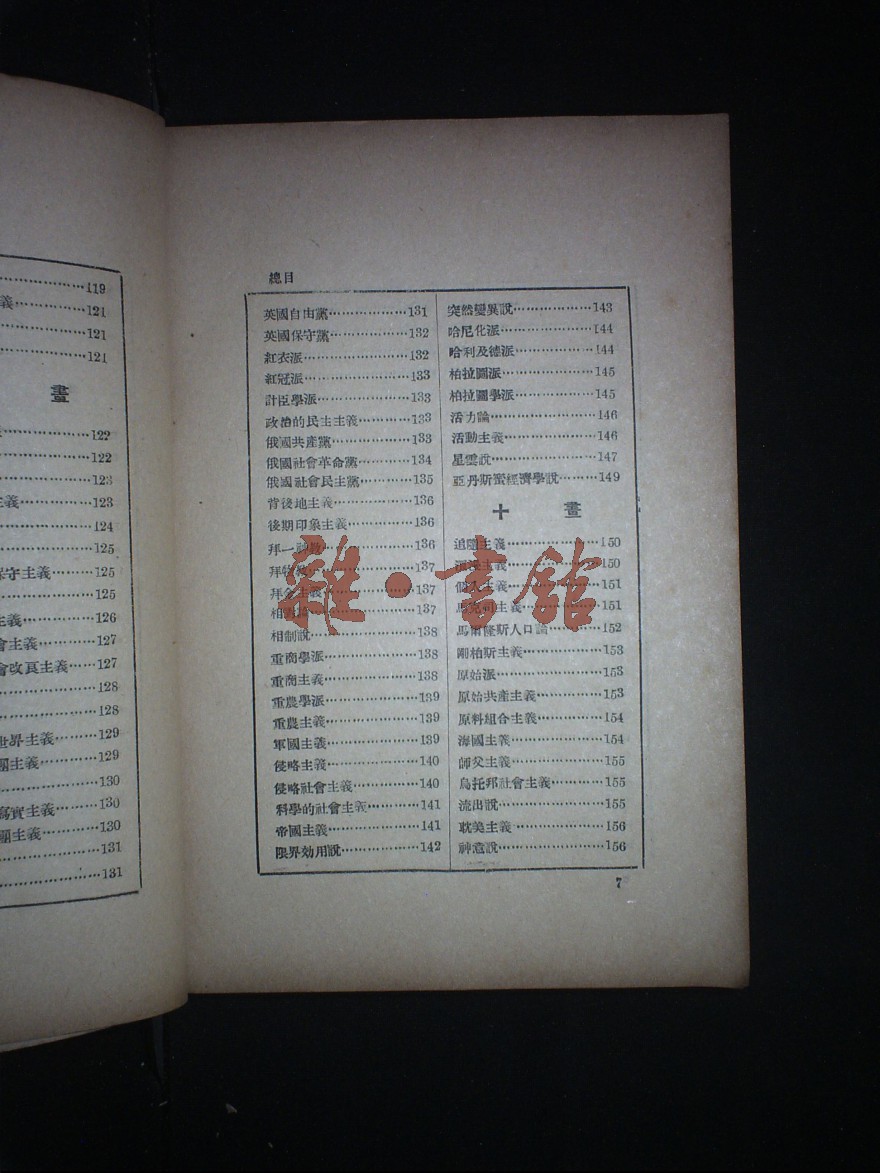 119
義 121
121
121
畫
122
122
123
主義 123
124
125
保守主義 125
125
主義 126
會主義 127
會改良主義 127
128
128
世界主義 129
團主義 129
130
寫實主義 130
團主義 130
131
131
總目
英國自由黨 131
英國保守黨 132
紅衣派 132
紅冠派 133
計臣學派 133
政治的民主主義 133
俄國共產黨 133
俄國社會革命黨 134
俄國社會民主黨 135
背後地主義 136
後期印象主義 136
拜一神教 136
拜物教 137
拜金主義 137
相 137
相制說 138
重商學派 138
重商主義 138
重農學派 139
重農主義 139
軍國主義 139
侵略主義 140
侵略社會主義 140
科學的社會主義 141
帝國主義 141
限界効用說 142
突然變異說 143
哈尼化派 144
哈利及德派 144
柏拉圖派 145
柏拉圖學派 145
活力論 146
活動主義 146
星雲說 147
亞丹斯蜜經濟學說 149
十 畫
追隨主義 150
主義 150
個人主義 151
馬克司主義 151
馬爾隆斯人口論 152
剛柏斯主義 153
原始派 153
原始共產主義 153
原料組合主義 154
海國主義 154
師父主義 155
烏托邦社會主義 155
流出說 155
耽美主義 156
神意說 156
7
雜·書館